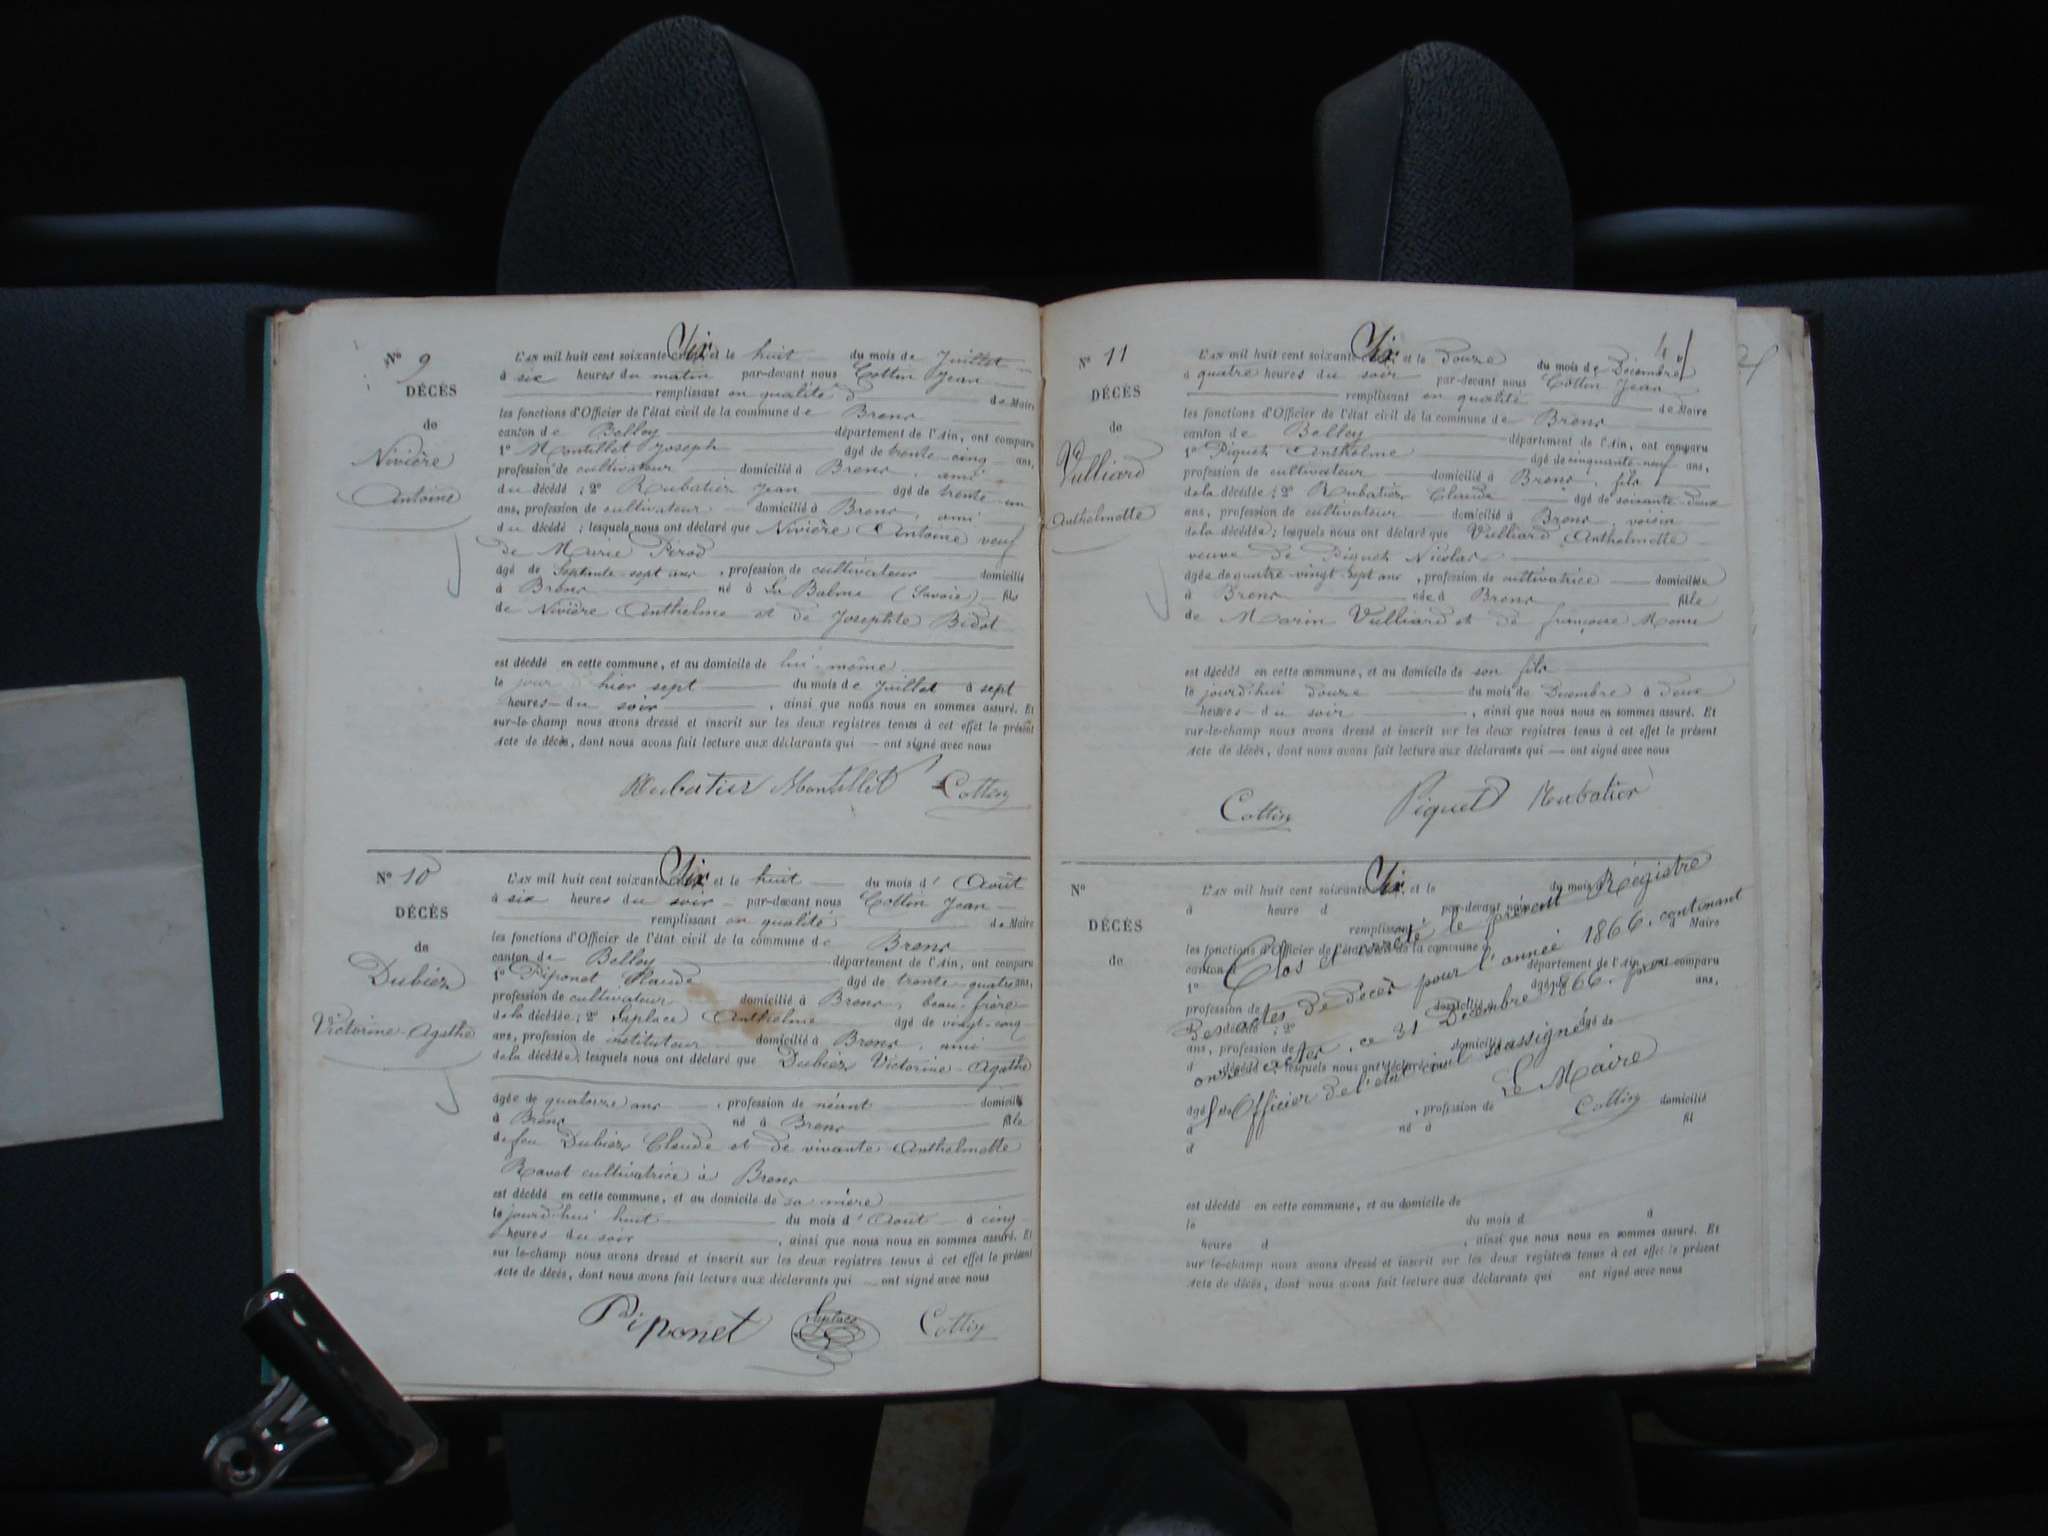 Nº 9
DÉCÈS
de
Nivière
Antoine
L'AN mil huit cent soixante Six et le huit du mois de Juillet
à six heures du matin par-devant nous Cottin Jean
remplissant en qualité de Maire
les fonctions d'Officier de l'état civil de la commune de Brens
canton de Belley département de l'Ain, ont comparu
1º Montillet Joseph âgé de trente-cinq ans,
profession de cultivateur domicilié à Brens, ami
du décédé ; 2º Rubatier Jean âgé de trente-un
ans, profession de cultivateur domicilié à Brens, ami
du décédé ; lesquels nous ont déclaré que Nivière Antoine veuf
de Marie Pirod
âgé de Septante-sept ans, profession de cultivateur domicilié
à Brens né à La Balme (Savoie) fils
de Nivière Anthelme et de Josephte Bidot
est décédé en cette commune, et au domicile de lui-même
le jour d'hier sept du mois de Juillet à sept
heures du soir, ainsi que nous nous en sommes assuré. Et
sur-le-champ nous avons dressé et inscrit sur les deux registres tenus à cet effet le présent
acte de décès, dont nous avons fait lecture aux déclarants qui ont signé avec nous
Rubatier Montillet Cottin
Nº 10
DÉCÈS
de
Dubiez
Victorine-Agathe
L'AN mil huit cent soixante Six et le huit du mois d'Août
à six heures du soir par-devant nous Cottin Jean
remplissant en qualité de Maire
les fonctions d'Officier de l'état civil de la commune de Brens
canton de Belley département de l'Ain, ont comparu
1º Piponet Claude âgé de trente-quatre ans,
profession de cultivateur domicilié à Brens, beau-frère
de la décédée ; 2º Laplace Anthelme âgé de vingt-cinq
ans, profession de instituteur domicilié à Brens, ami
de la décédée, lesquels nous ont déclaré que Dubiez Victorine-Agathe
âgée de quatorze ans, profession de néant domicilié
à Brens né à Brens fille
de feu Dubiez Claude et de vivante Anthelmette
Ravet cultivatrice à Brens
est décédé en cette commune, et au domicile de sa mère
le jourd'hui huit du mois d'Août à cinq
heures du soir, ainsi que nous nous en sommes assuré. Et
sur-le-champ nous avons dressé et inscrit sur les deux registres tenus à cet effet le présent
acte de décès, dont nous avons fait lecture aux déclarants qui ont signé avec nous
Piponet Laplace Cottin
Nº 11
DÉCÈS
de
Vulliard
Anthelmette
L'AN mil huit cent soixante Six et le Douze du mois de Décembre
à quatre heures du soir par-devant nous Cottin Jean
remplissant en qualité de Maire
les fonctions d'Officier de l'état civil de la commune de Brens
canton de Belley département de l'Ain, ont comparu
1º Piquet Anthelme âgé de cinquante-neuf ans,
profession de cultivateur domicilié à Brens, fils
de la décédée ; 2º Rubatier Claude âgé de soixante-deux
ans, profession de cultivateur domicilié à Brens, voisin
de la décédée ; lesquels nous ont déclaré que Vulliard Anthelmette
veuve de Piquet Nicolas
âgée de quatre-vingt-sept ans, profession de cultivatrice domiciliée
à Brens née à Brens fille
de Marin Vulliard et de françoise
est décédé en cette commune, et au domicile de son fils
le jourd'hui douze du mois de Décembre à Deux
heures du soir, ainsi que nous nous en sommes assuré. Et
sur-le-champ nous avons dressé et inscrit sur les deux registres tenus à cet effet le présent
acte de décès, dont nous avons fait lecture aux déclarants qui ont signé avec nous
Cottin Piquet Rubatier
Nº
DÉCÈS
de
L'AN mil huit cent soixante Six et le du mois d
à heure d par-devant nous
remplissant
de Maire
les fonctions d'Officier de l'état civil de la commune d
canton d département de l'Ain, ont comparu
1º âgé de ans,
profession de domicilié à
d décédé ; 2º âgé de
ans, profession de domicilié à
d décédé lesquels nous ont déclaré que
âgé de , profession de domicilié
à né à fil
d
Clos et arrêté le présent Régistre
Des actes de décès pour l'année 1866, contenant
onze actes, ce 31 Décembre 1866. par nous
Officier de l'état civil soussigné
Le Maire
Cottin
est décédé en cette commune, et au domicile de
le du mois d à
heure d , ainsi que nous nous en sommes assuré. Et
sur-le-champ nous avons dressé et inscrit sur les deux registres tenus à cet effet le présent
acte de décès, dont nous avons fait lecture aux déclarants qui ont signé avec nous